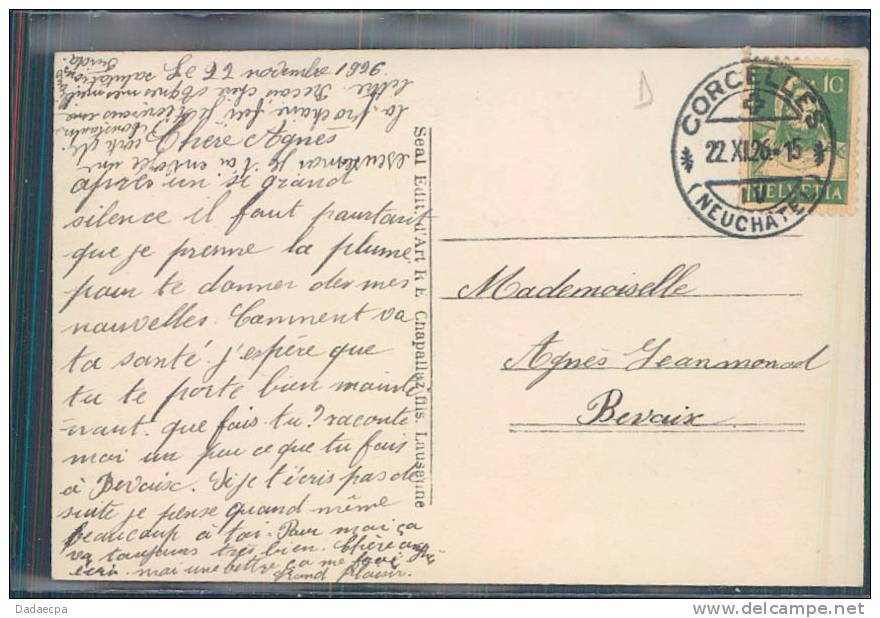 CORCELLES
22.XI.26-15
IV
(NEUCHÂTEL)
10
HELVETIA
D
Seal Edit. d'Art R E. Chapallaz fils. Lausanne
Mademoiselle
Agnès Jeanmonod
Bevaix.
Chère Agnès
après un si grand
silence il faut pourtant
que je prenne la plume
pour te donner des mes
nouvelles. Comment va
ta santé. j'espère que
tu te porte bien mainte
-nant. que fais tu? raconte
moi un peu ce que tu fais
à Bevaix. Si je t'écris pas de
suite je pense quand même
beaucoup à toi. Pour moi ça
va toujours très bien. Chère
écris moi une lettre ça me
grand plaisir.
je t'ai envoié une
carte
la prochaine fois je t'écrirais une
lettre. Recois chère Agnès mes meil
salutations Le 22 novembre 1926
Dadaecpa
http://www.delcampe.net